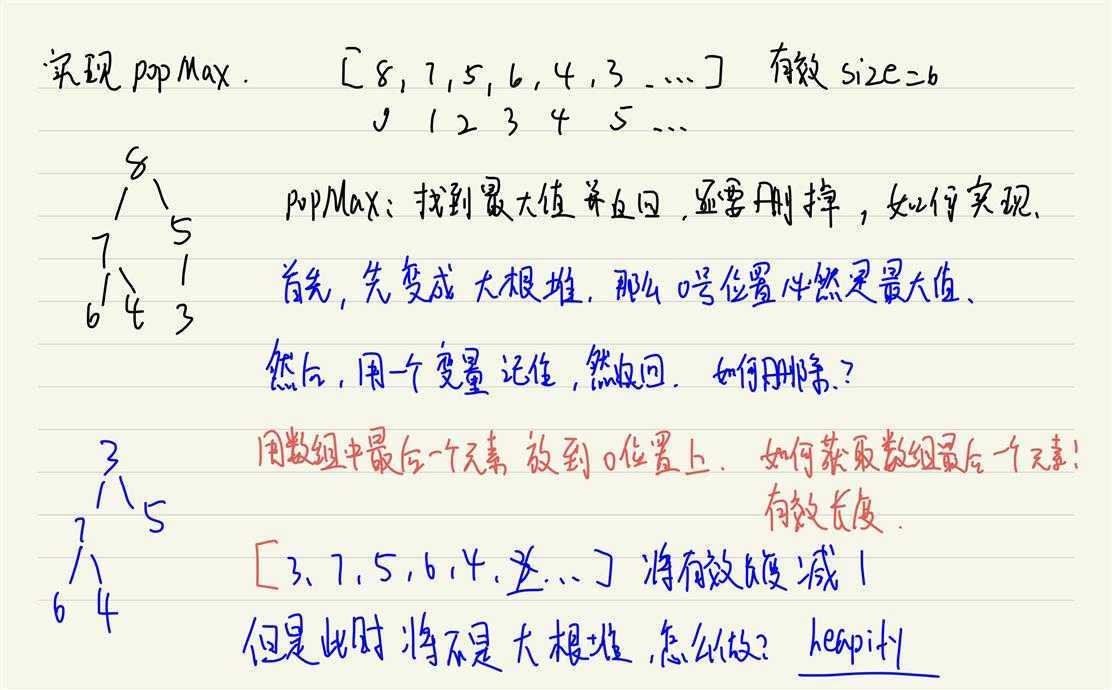 实现 popMax. [8, 7, 5, 6, 4, 3 ....] 有效 size=6
0 1 2 3 4 5 ...
8
7 5
6 4 3
popMax: 找到最大值并返回, 还要删掉, 如何实现、
首先, 先变成 大根堆. 那么 0号位置必然是最大值、
然后, 用一个变量记住, 然返回. 如何删除?
用数组中最后一个元素 放到 0位置上. 如何获取数组最后一个元素!
有效长度.
3
7 5
6 4
[3、7, 5, 6, 4, 3...] 将有效长度减 1
但是此时将不是大根堆, 怎么做? heapify